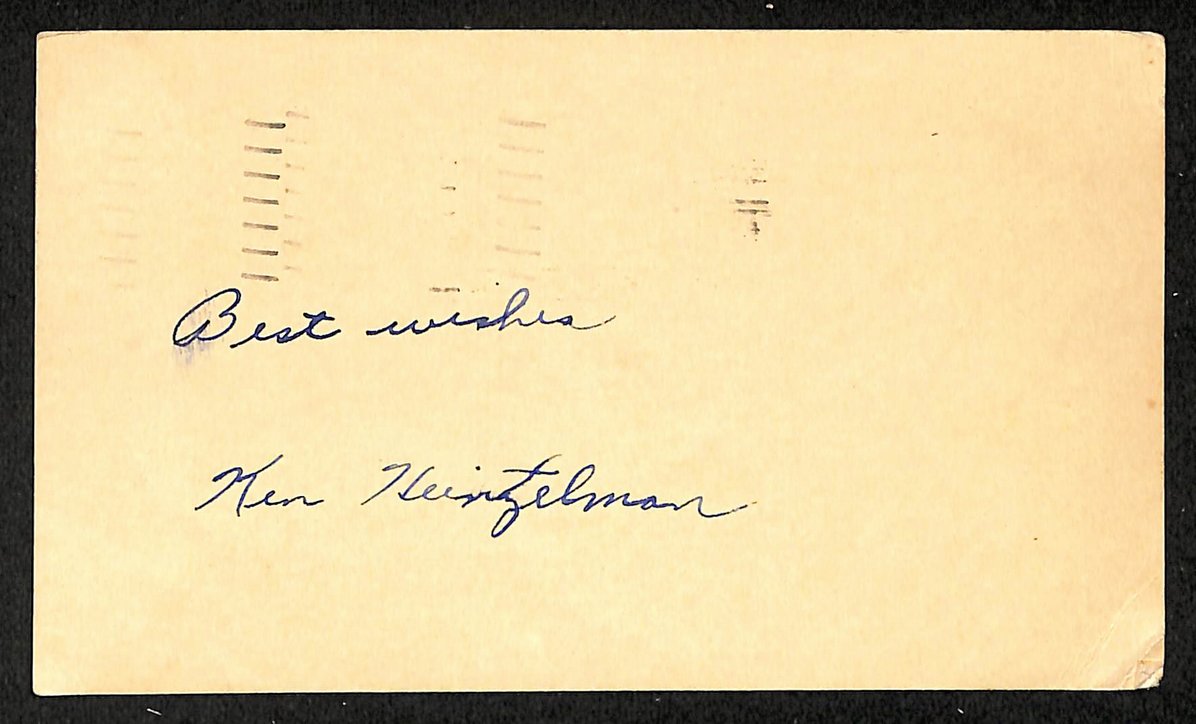 Best wishes
Ken Heintzelman